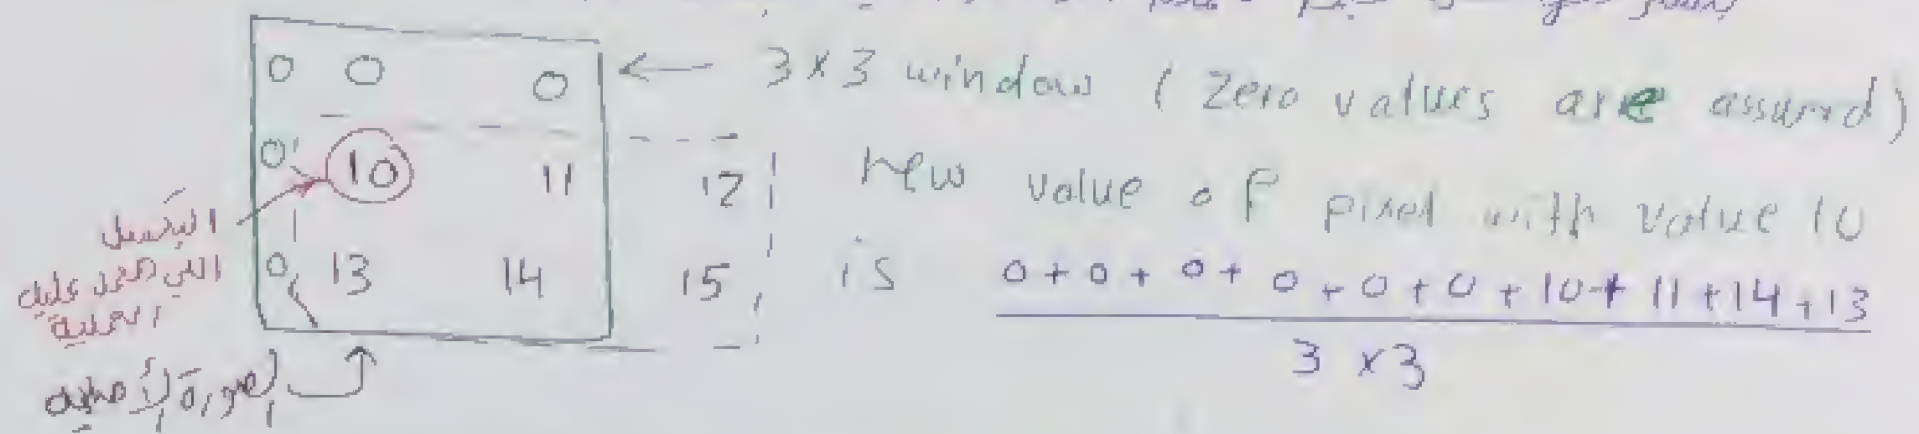 0 0 0 ← 3 x 3 window ( Zero values are assumd)
0 10 11 12 new value of pixel with value 10
البكسل
0 13 14 15 is 0 + 0 + 0 + 0 + 0 + 0 + 10 + 11 + 14 + 13
اللي نعمل عليه
العملية
3 x 3
الصورة الأصلية